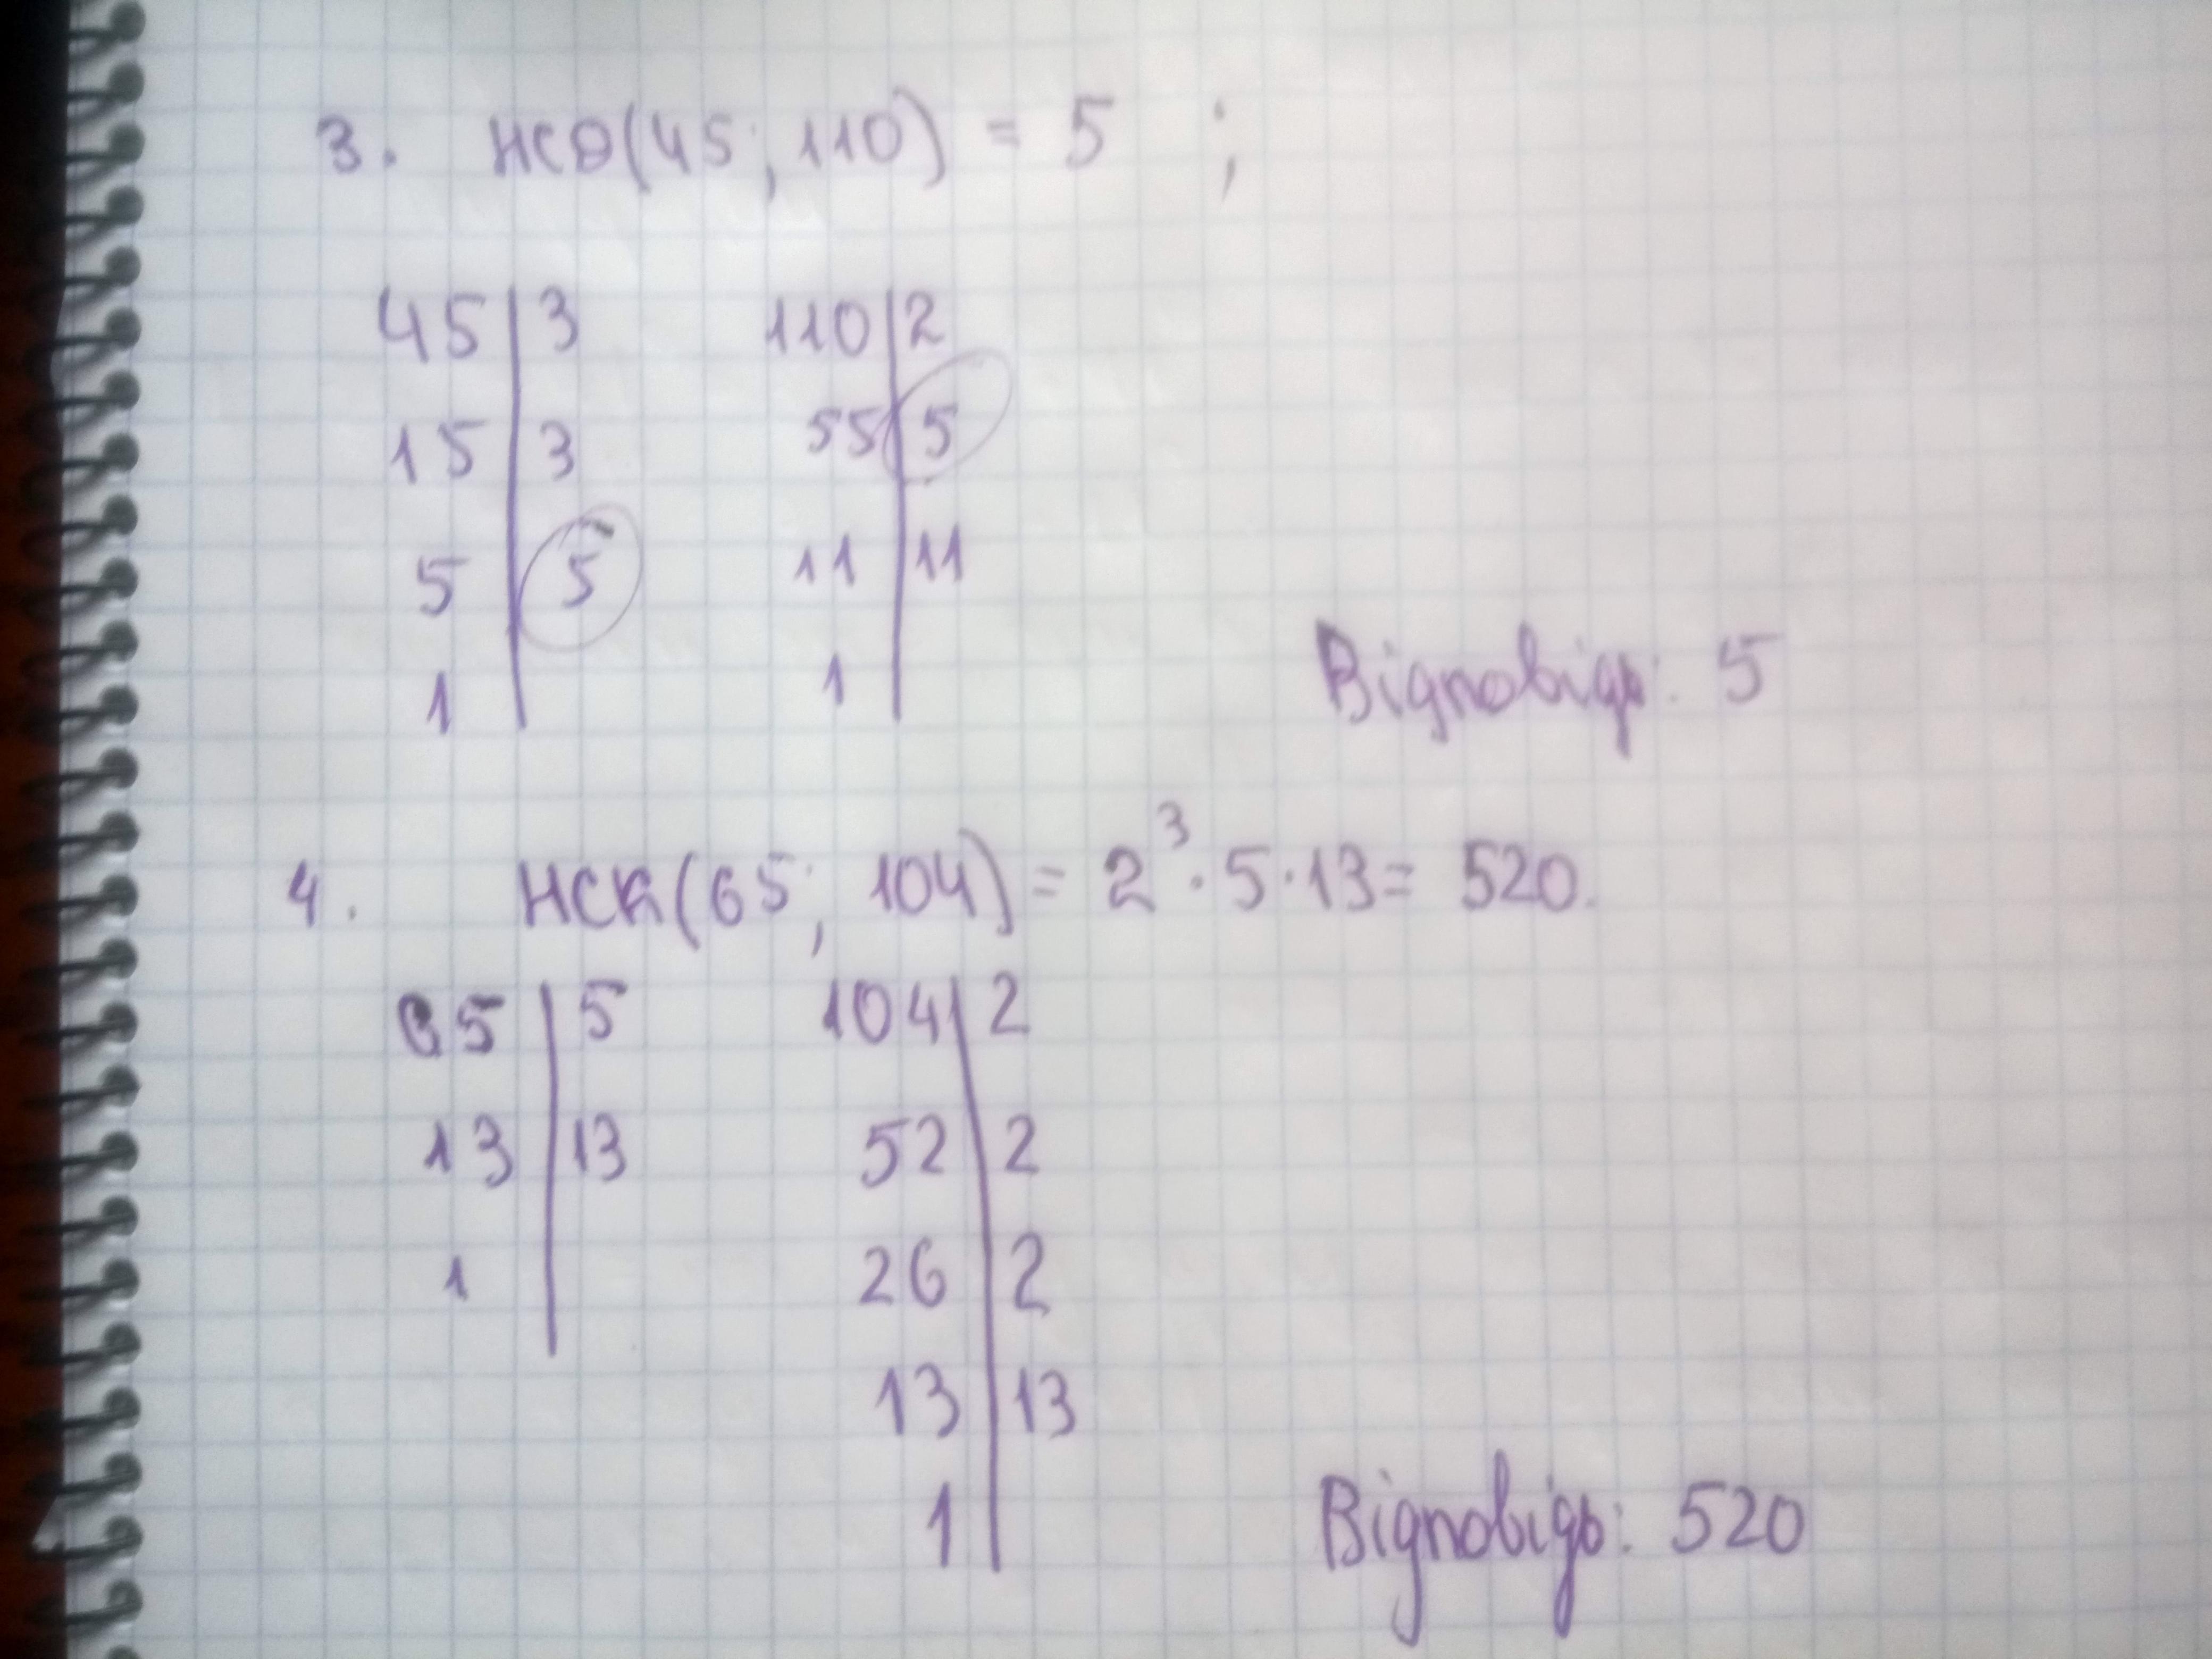 3. НСД(45; 110) = 5 ;
45 | 3 110 | 2
15 | 3 55 | 5
5 | 5 11 | 11
1 | 1 |
Відповідь: 5
4. НСК(65; 104) = 2³ · 5 · 13 = 520.
65 | 5 104 | 2
13 | 13 52 | 2
1 | 26 | 2
13 | 13
1 |
Відповідь: 520